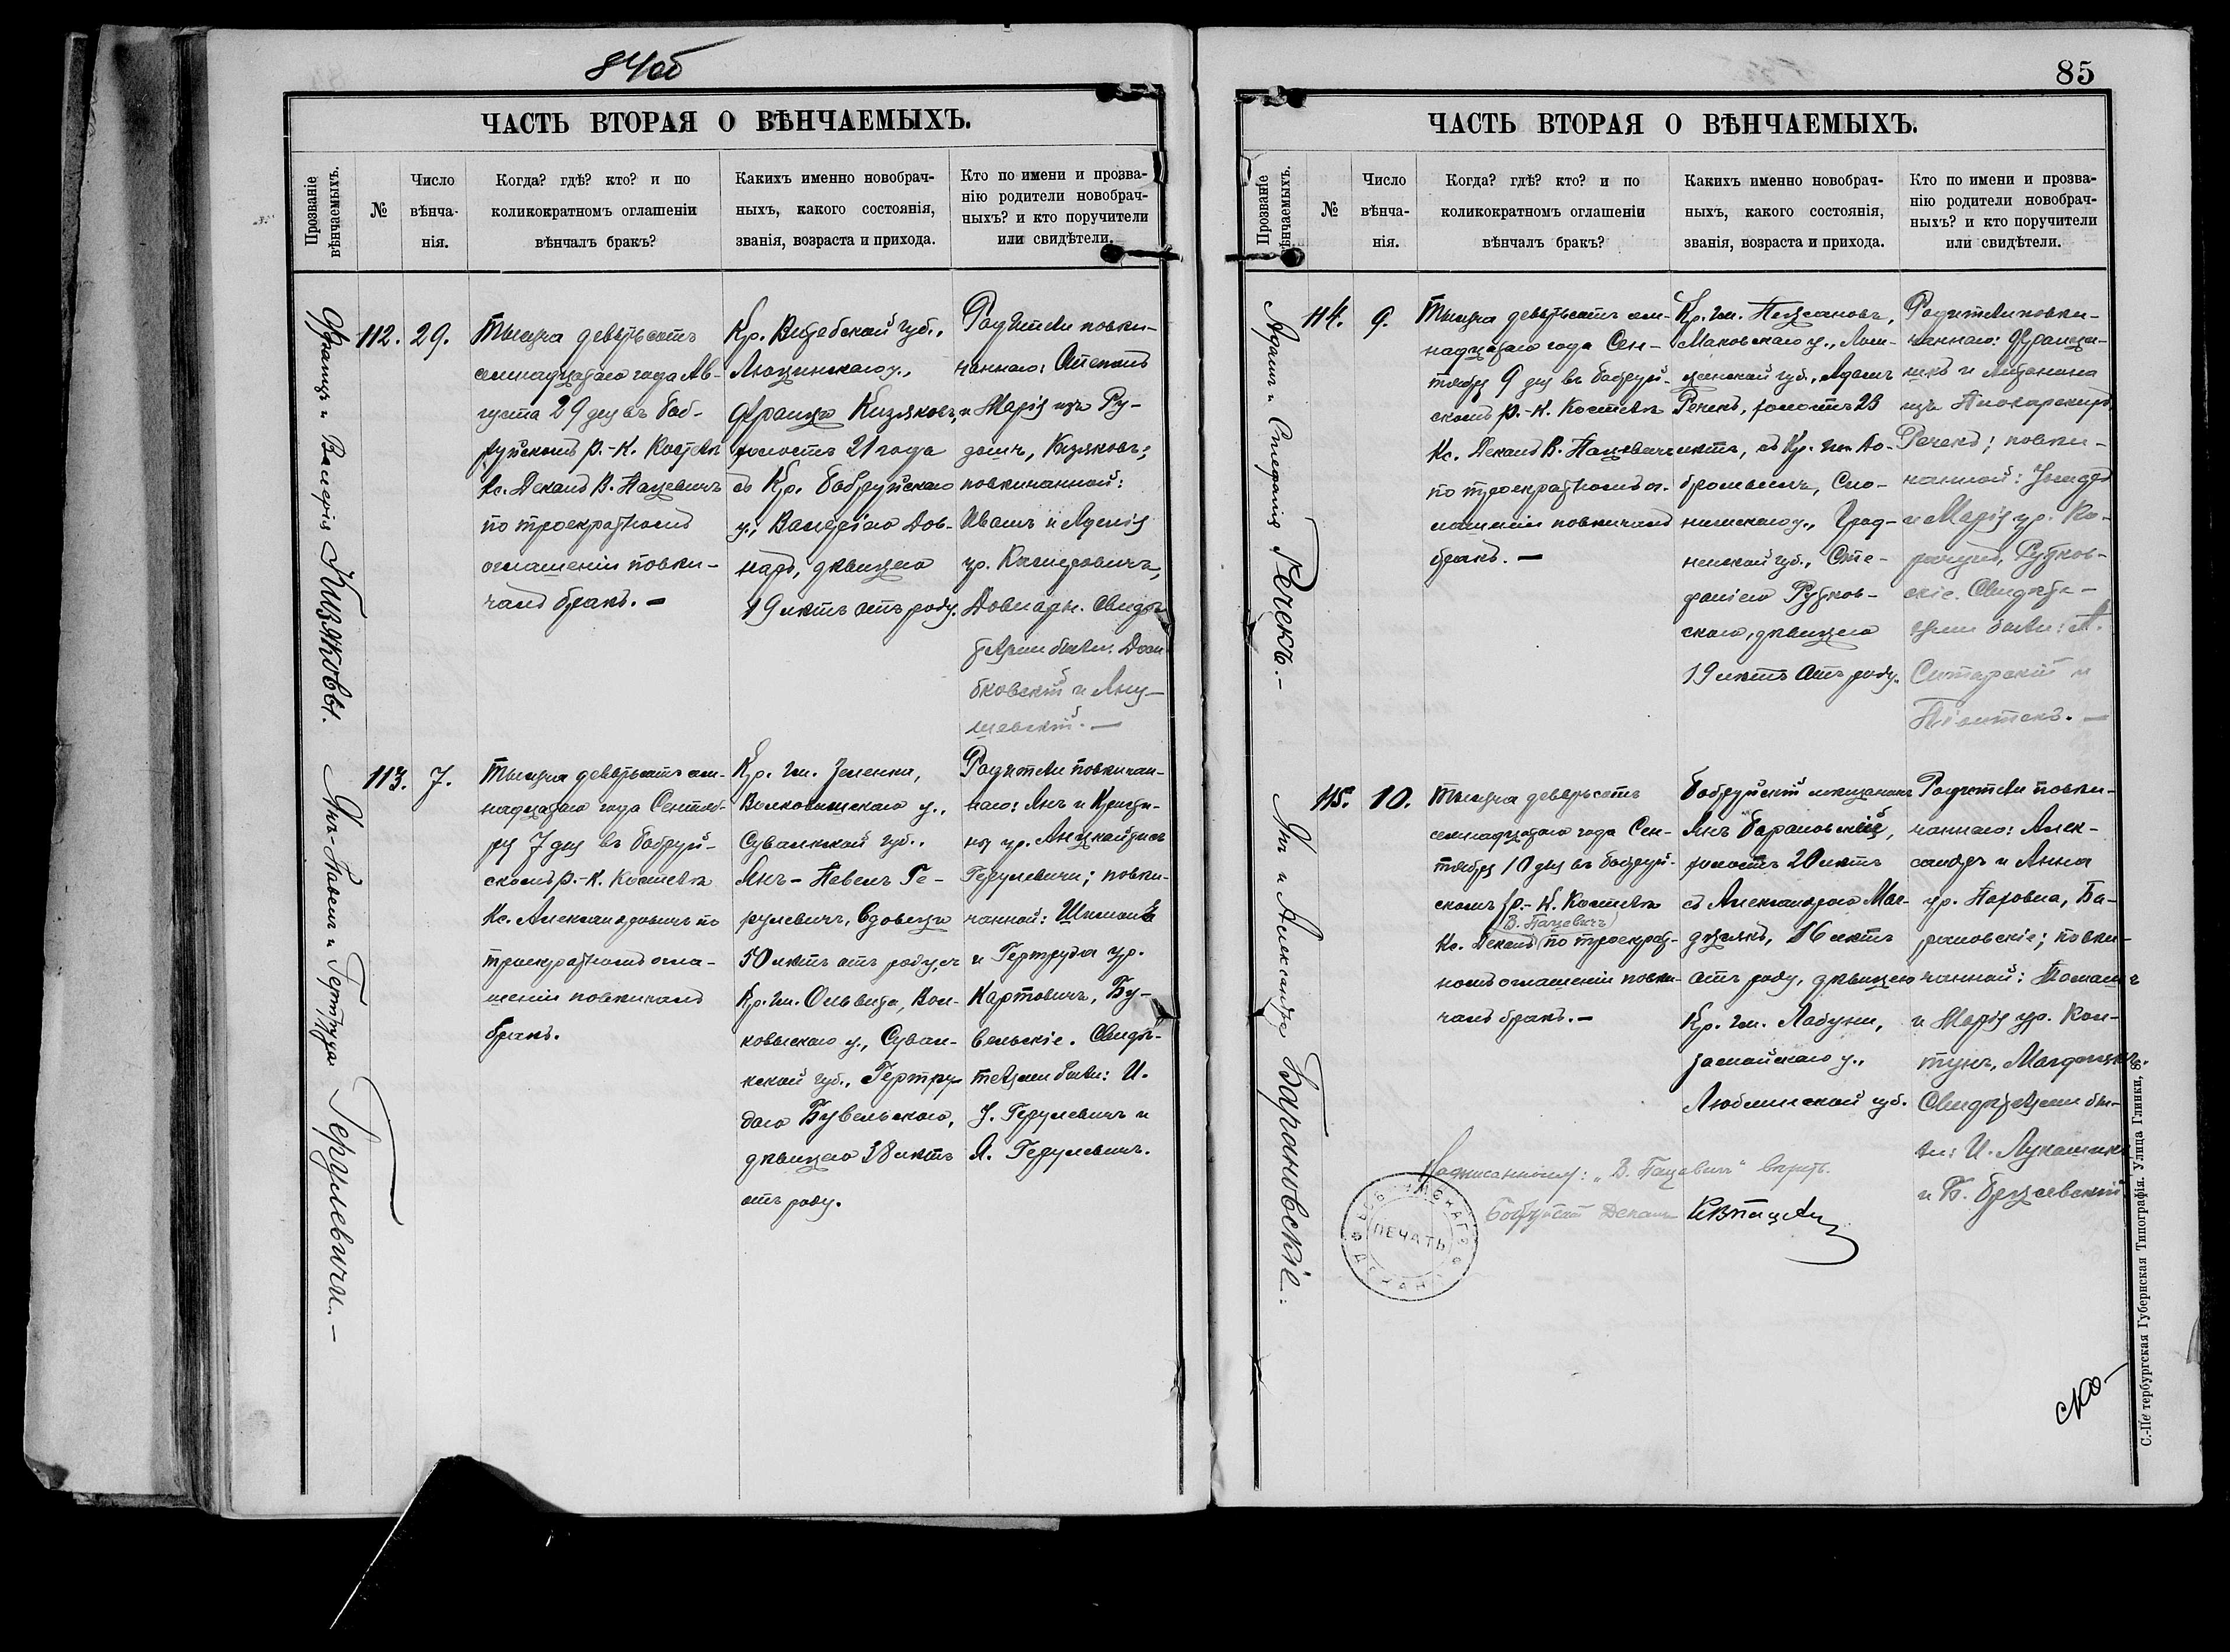 84об
ЧАСТЬ ВТОРАЯ О ВѢНЧАЕМЫХЪ.
Прозваніе вѣнчаемыхъ.
№
Число вѣнча-
нія.
Когда? гдѣ? кто? и по
коликократномъ оглашеніи
вѣнчалъ бракъ?
Какихъ именно новобрач-
ныхъ, какого состоянія,
званія, возраста и прихода.
Кто по имени и прозва-
нію родители новобрач-
ныхъ? и кто поручители
или свидѣтели.
Францъ и Валерія Кизяковы.
112.
29.
Тысяча девятьсотъ
семнадцатаго года Ав-
густа 29 дня въ Боб-
руйскомъ Р.-К. Костелѣ
Кс. Деканъ В. Пацевичъ
по троекратномъ
оглашеніи повѣн-
чалъ бракъ. —
Кр. Витебской губ.,
Люцинскаго у.,
Франца Кизяковъ,
холостъ 21 года
съ Кр. Бобруйскаго
у., Валеріею Дов-
наръ, дѣвицею
19 лѣтъ отъ роду.
Родители повѣн-
чаннаго: Антонъ
и Марія изъ Ру-
повѣнчанной:
Иванъ и Аделія
ур.
Довнары. Свидѣ-
телями были: Дом-
бковскій и Яну-
шевскій. —
Янъ-Павелъ и Гертруда Герулевичи. —
113.
7.
Тысяча девятьсотъ сем-
надцатаго года Сентяб-
ря 7 дня въ Бобруй-
скомъ Р.-К. Костелѣ
Кс. Александровичъ по
троекратномъ огла-
шеніи повѣнчалъ
бракъ.
Кр. гм. Зеленки,
Волковышскаго у.,
Сувалкской губ.,
Янъ-Павелъ Ге-
рулевичъ, вдовецъ
50 лѣтъ отъ роду, съ
Кр. гм. Ольвита, Вол-
ковыскаго у., Сувал-
кской губ., Гертру-
дою Бувельскою,
дѣвицею 38 лѣтъ
отъ роду.
Родители повѣнчан-
наго: Янъ и Кристи-
на ур.
Герулевичи; повѣн-
чанной: Шимонъ
и Гертруда ур.
Картовичъ, Бу-
вельскіе. Свидѣ-
телями были: И.
З. Герулевичъ и
А. Герулевичъ.
85
ЧАСТЬ ВТОРАЯ О ВѢНЧАЕМЫХЪ.
Прозваніе вѣнчаемыхъ.
№
Число вѣнча-
нія.
Когда? гдѣ? кто? и по
коликократномъ оглашеніи
вѣнчалъ бракъ?
Какихъ именно новобрач-
ныхъ, какого состоянія,
званія, возраста и прихода.
Кто по имени и прозва-
нію родители новобрач-
ныхъ? и кто поручители
или свидѣтели.
Адамъ и Стефанія Речекъ. —
114.
9.
Тысяча девятьсотъ сем-
надцатаго года Сен-
тября 9 дня въ Бобруй-
скомъ Р.-К. Костелѣ
Кс. Деканъ В. Пацевичъ
по троекратномъ ог-
лашеніи повѣнчалъ
бракъ. —
Кр. гм.
Маковскаго у., Лом-
жинской губ., Адамъ
Речекъ, холостъ 23
лѣтъ, съ Кр. гм. До-
бромысль, Сло-
нимскаго у., Грод-
ненской губ., Сте-
фаніею Рутков-
скою, дѣвицею
19 лѣтъ отъ роду.
Родители повѣн-
чаннаго: Франци-
шкъ и Антонина
изъ
Речекъ; повѣн-
чанной:
и Марія ур. Ко-
Рутков-
скіе. Свидѣте-
лями были: А.
Ситарскій и
Піонтекъ. —
Янъ и Александра Барановскіе.
115.
10.
Тысяча девятьсотъ
семнадцатаго года Сен-
тября 10 дня въ Бобруй-
скомъ Р.-К. Костелѣ
В. Пацевичъ
Кс. Деканъ по троекрат-
номъ оглашеніи повѣн-
чалъ бракъ. —
Бобруйскій мѣщанинъ
Янъ Барановскій,
холостъ 20 лѣтъ
съ Александрою Маг-
дзякъ, 16 лѣтъ
отъ роду, дѣвицею
Кр. гм. Лабуни,
Замойскаго у.,
Люблинской губ.
Родители повѣн-
чаннаго: Алек-
сандръ и Анна
ур. Ба-
рановскіе; повѣн-
чанной: Томашъ
и Марія ур. Кол-
тунъ,
Свидѣтелями бы-
ли: И. Лукашикъ
и Б.
Надписанному: „В. Пацевичъ" вѣрить.
Бобруйскій Деканъ
ПЕЧАТЬ
ско-
С.-Петербургская Губернская Типографія. Улица Глинки, 8.